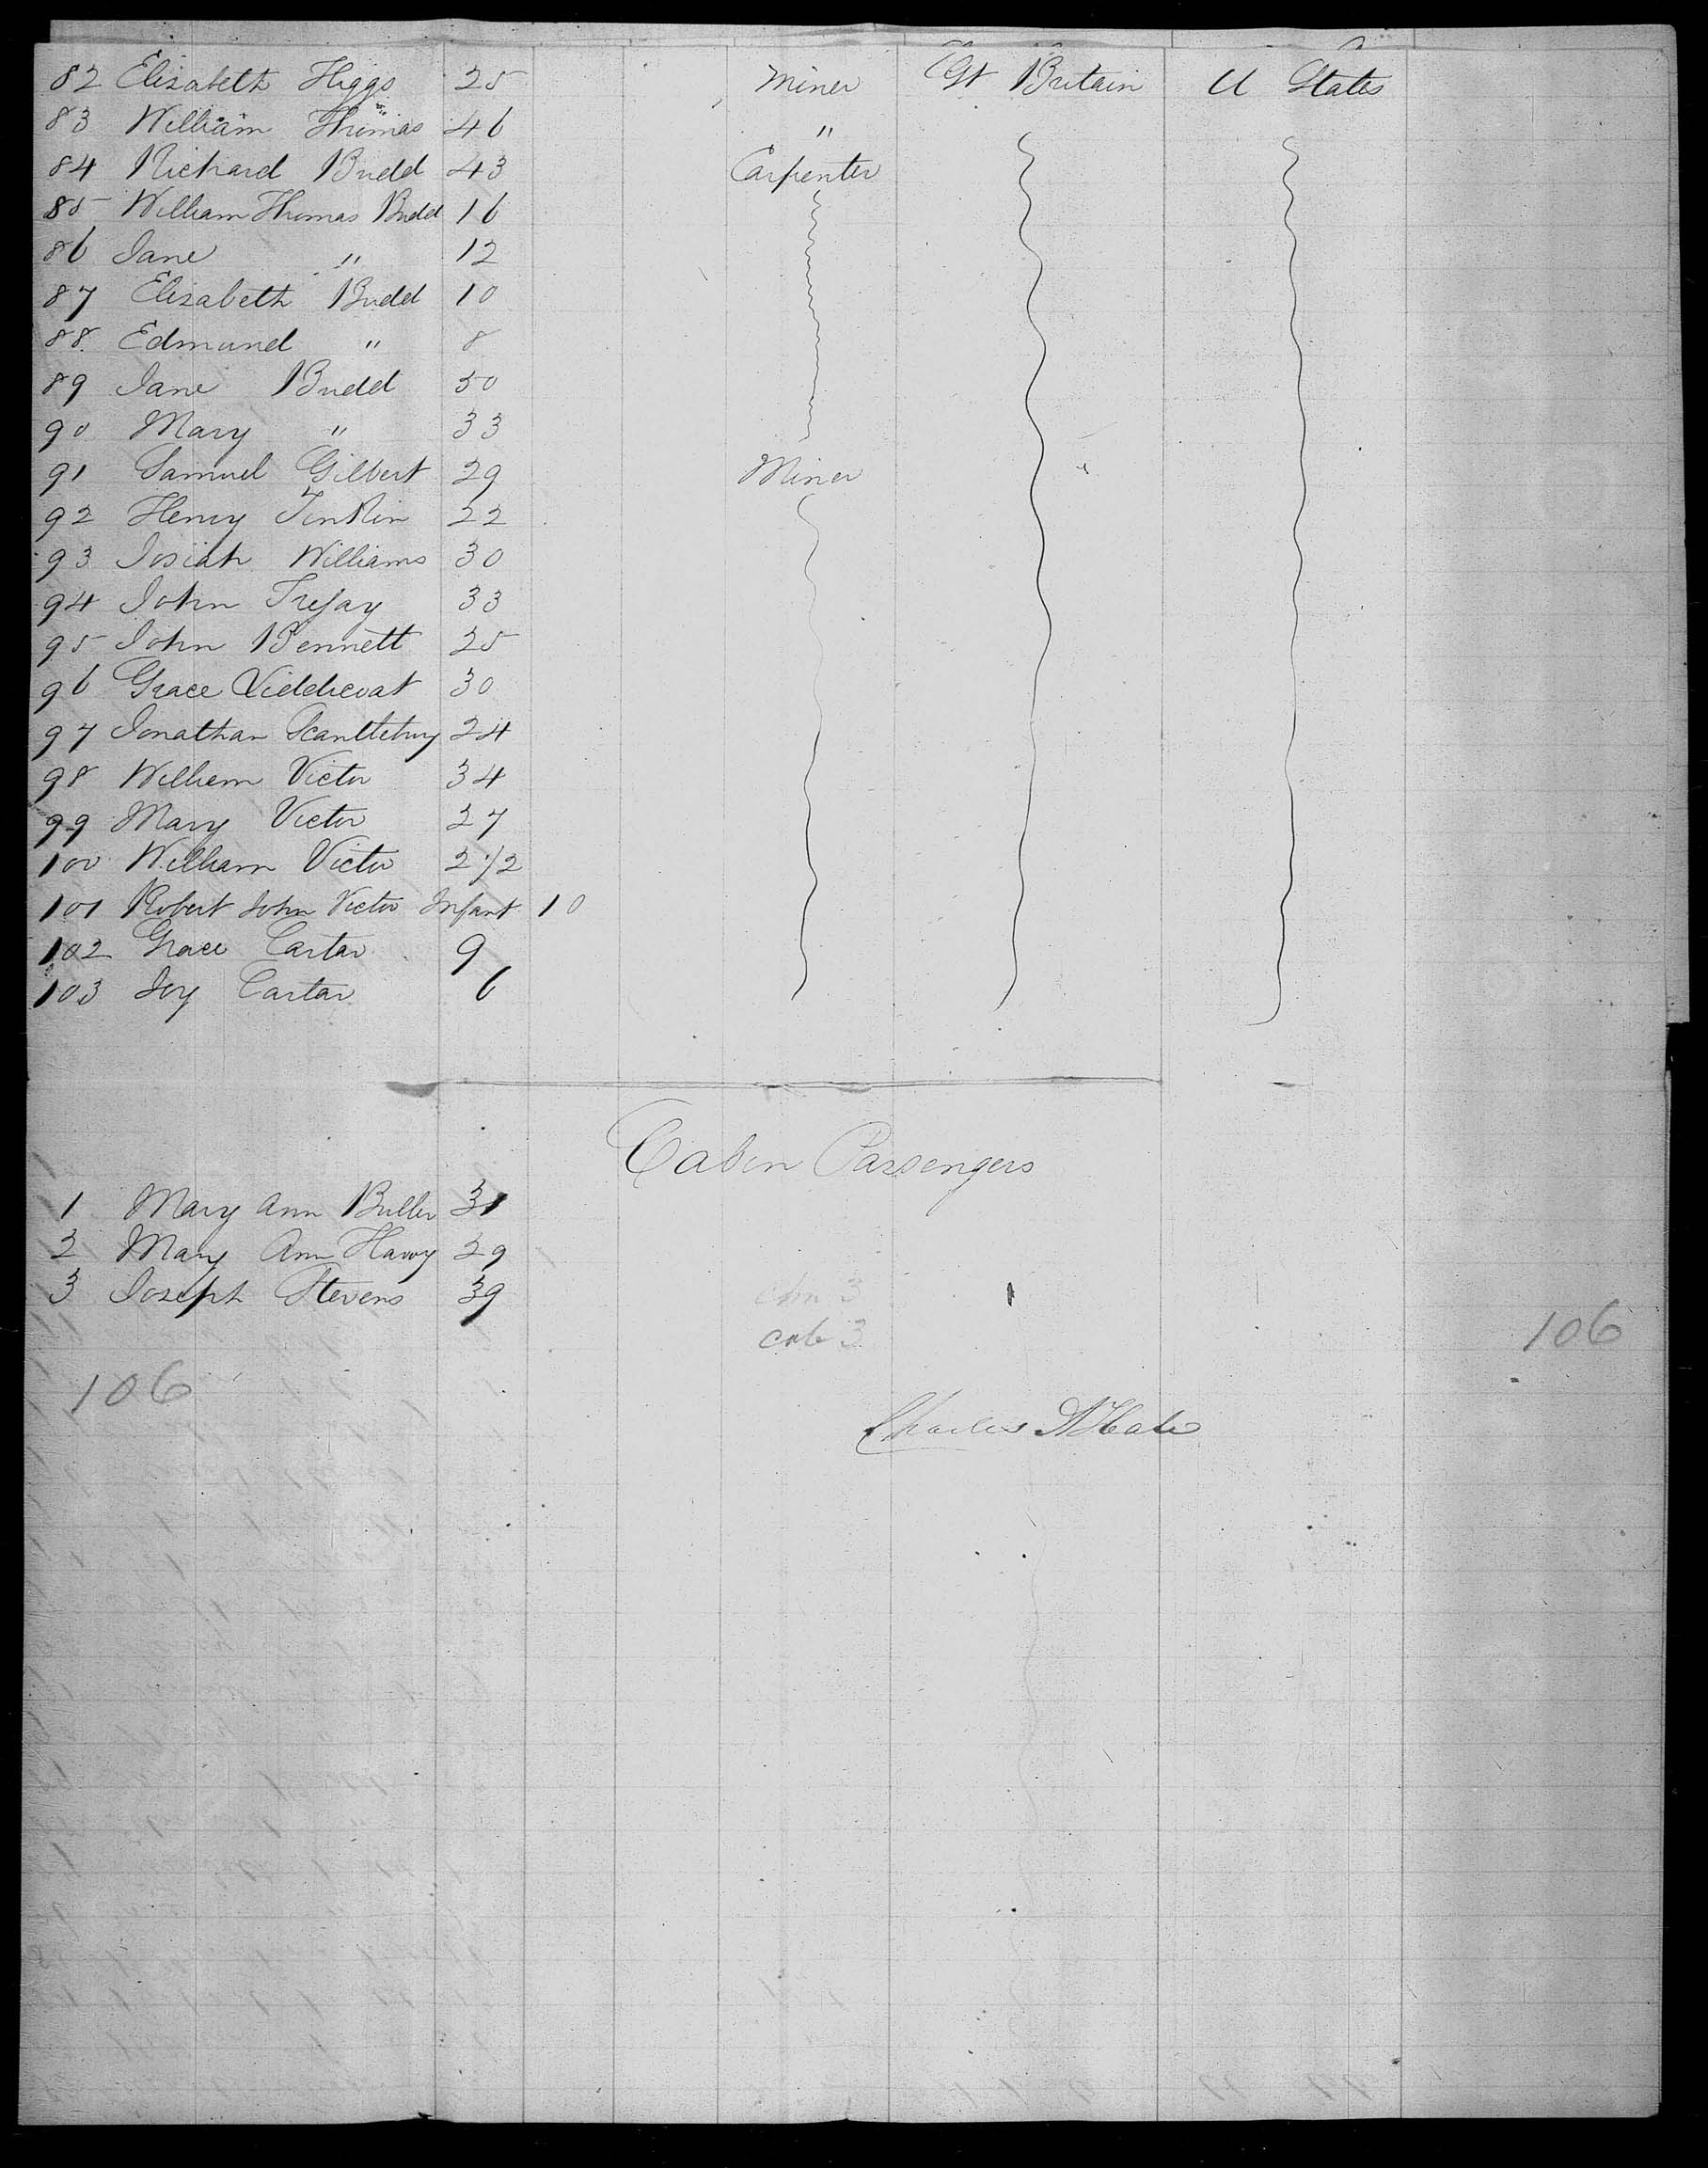 82 Elizabeth Higgs 25 Miner Gt Britain U States
83 William Thomas 46 "
84 Richard Budd 43 Carpenter
85 William Thomas Budd 16
86 Jane " 12
87 Elizabeth Budd 10
88 Edmund " 8
89 Jane Budd 50
90 Mary " 33
91 Samuel Gilbert 29 Miner
92 Henry Jenkin 22
93 Josiah Williams 30
94 John Trefay 33
95 John Bennett 25
96 Grace 30
97 Jonathan Scantlebury 24
98 William Victor 34
99 Mary Victor 27
100 William Victor 2 1/2
101 Robert John Victor Infant 10
102 Grace Carter 9
103 Joy Carter 6
Cabin Passengers
1 Mary Ann Buller 31
2 Mary Ann Harvy 29
3 Joseph Stevens 39
cab 3
106
106
Charles